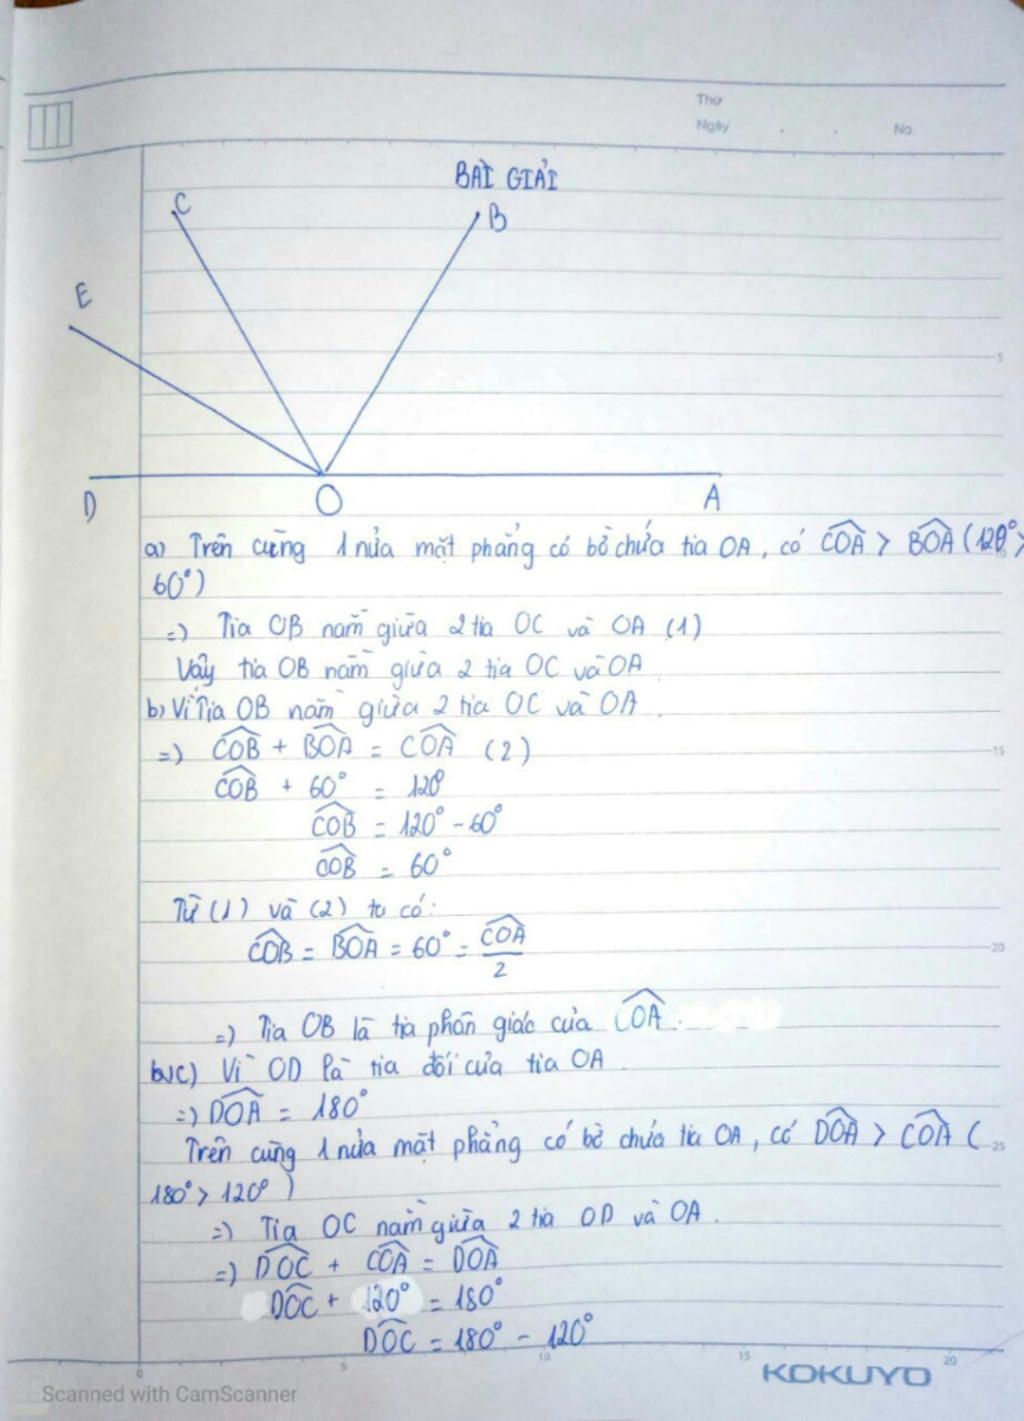 Thứ
Ngày . . No.
BÀI GIẢI
C
B
E
5
D
O
A
a) Trên cùng 1 nửa mặt phẳng có bờ chứa tia OA, có COA > BOA (120° >
60°)
=) Tia OB nằm giữa 2 tia OC và OA (1)
Vậy tia OB nằm giữa 2 tia OC và OA
b) Vì Tia OB nằm giữa 2 tia OC và OA.
=) COB + BOA = COA (2)
15
COB + 60° = 120°
COB = 120° - 60°
COB = 60°
Từ (1) và (2) ta có:
COB = BOA = 60° = COA/2
20
=) Tia OB là tia phân giác của COA.
c) Vì OD là tia đối của tia OA
=) DOA = 180°
Trên cùng 1 nửa mặt phẳng có bờ chứa tia OA, có DOA > COA (
25
180° > 120°)
=) Tia OC nằm giữa 2 tia OD và OA.
=) DOC + COA = DOA
DOC + 120° = 180°
DOC = 180° - 120°
0 5 10 15 20
KOKUYO
Scanned with CamScanner